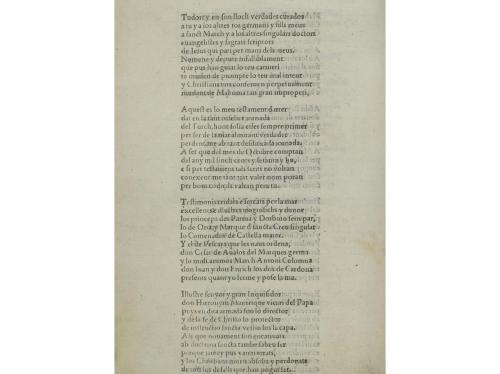 Tudor y en son lloch verdader curador
a tu y a los altres tos germans y fills meus
a sanct March y a los altres singulars doctors
euangelistes y sagrats scriptors
de Iesus qui pati per mans dels meus.
Nomene y depute infalliblament
que pus han guiat lo teu
te muden de prompte lo teu mal intent
y Christians vos confermen perpetualment
de Mahoma tan gran improperi.

Aquest es lo meu testament darrer
dat en la tant jornada
del Turch, hont solia esser sempre primer
per ser de la mar almirant verdader
perdent ab tant desdichada jornada.
A set que del mes de Octubre comptan
del any mil sinch cents y setanta y hu,
e si per testament tals scrits no voldran
conexent me tant tart valer nom poran
per bom codicils valran pera tu.

Testimonis cridats e foren per la mar
excellents e illustres insignissims y donor
los princeps des Parma y Dorbino sens par,
lo de Marques d sancta Creu singular
lo Comenador de Castella maior.
Y el de Pescara que les naus ordena,
don Cesar de Aualos del Marques germa
y lo March Antoni Colonna
don Iuan y don Enrich los dos de Cardona
presents quant yo ferme y pose la ma.

Illustre senyor y gran Inquisidor
don Hieronym Manrrique vicari del Papa
puys en dita armada sou lo director
y de la fe de Christo lo protector
de instructio sancta vestiu los la capa.
Als que nouament son
ab doctrina sancta
porque iames pus vaien errats,
y los Christians morts absolts y perdonats
de tots sus defalts que han pogut fer.